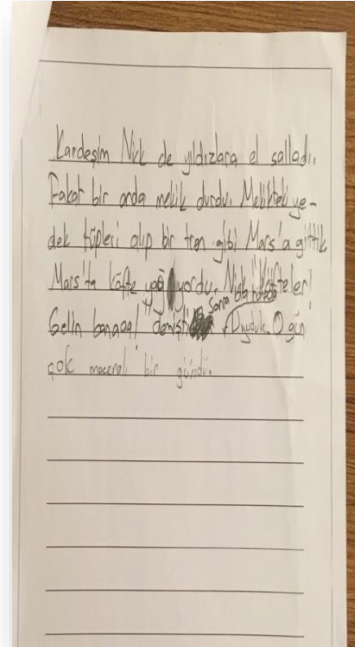 Kardeşim Nick de yıldızlara el salladı.
Fakat bir anda mekik durdu. Mekikteki ye-
dek tüpleri alıp bir tren gibi Mars'a gittik
Mars'ta köfte yağıyordu. Nick "Köfteler!
sonra
Gelin banaaa!" demişti Duyduk. O gün
çok maceralı bir gündü.